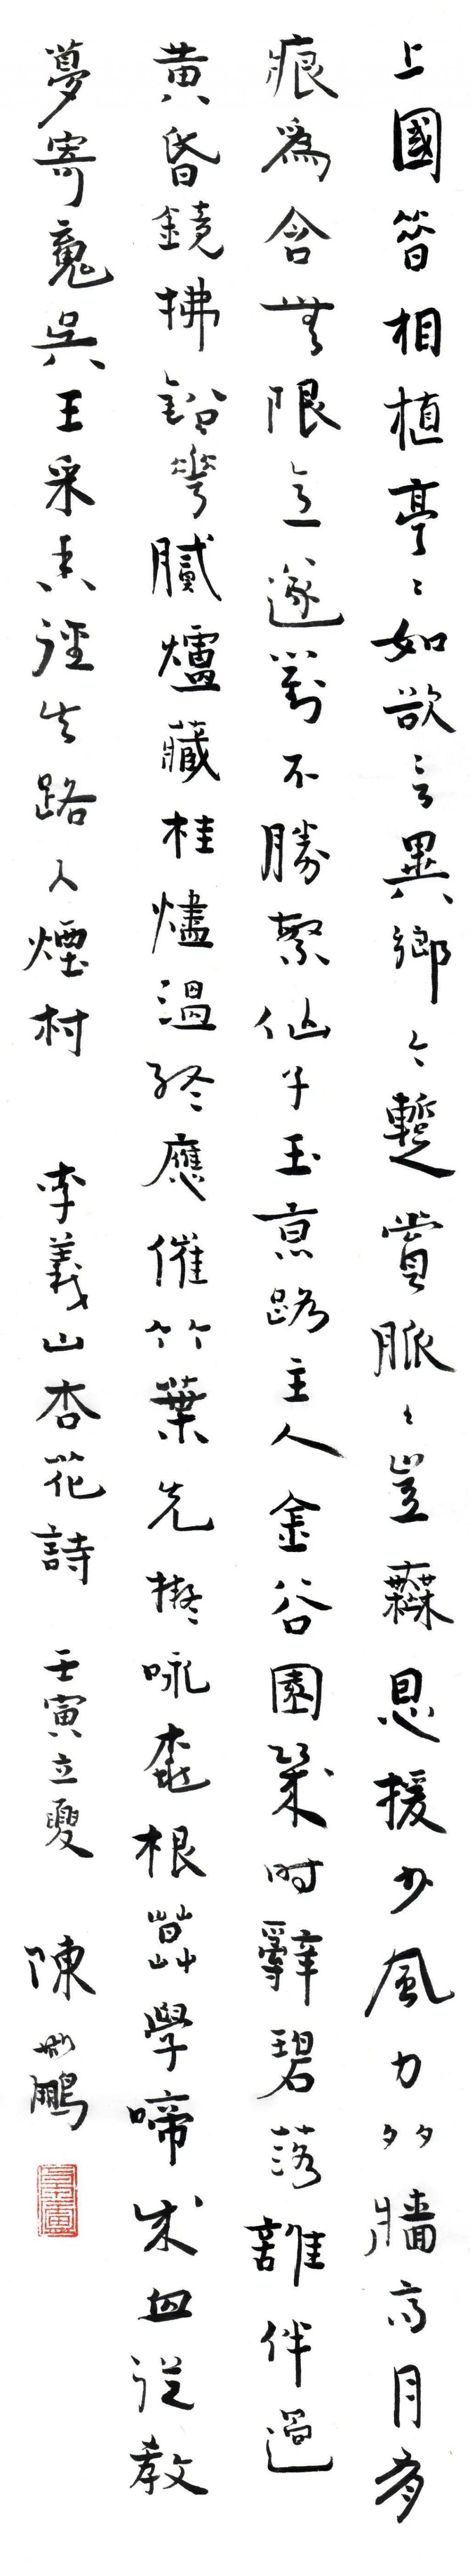 上國昔相植亭〻如欲言異鄉今暫賞脈〻豈無恩援少風力多牆高月有
痕為含無限意遂對不勝繁仙子玉京路主人金谷園幾時辭碧落誰伴過
黃昏鏡拂鉛華膩爐藏桂燼溫終應催竹葉先擬咏桃根莫學啼成血從教
夢寄魂吳王采香徑失路入煙村 李義山杏花詩 壬寅立夏 陳斯鵬